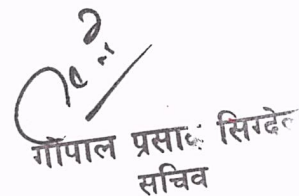 गोपाल प्रसाद सिग्देल
सचिव